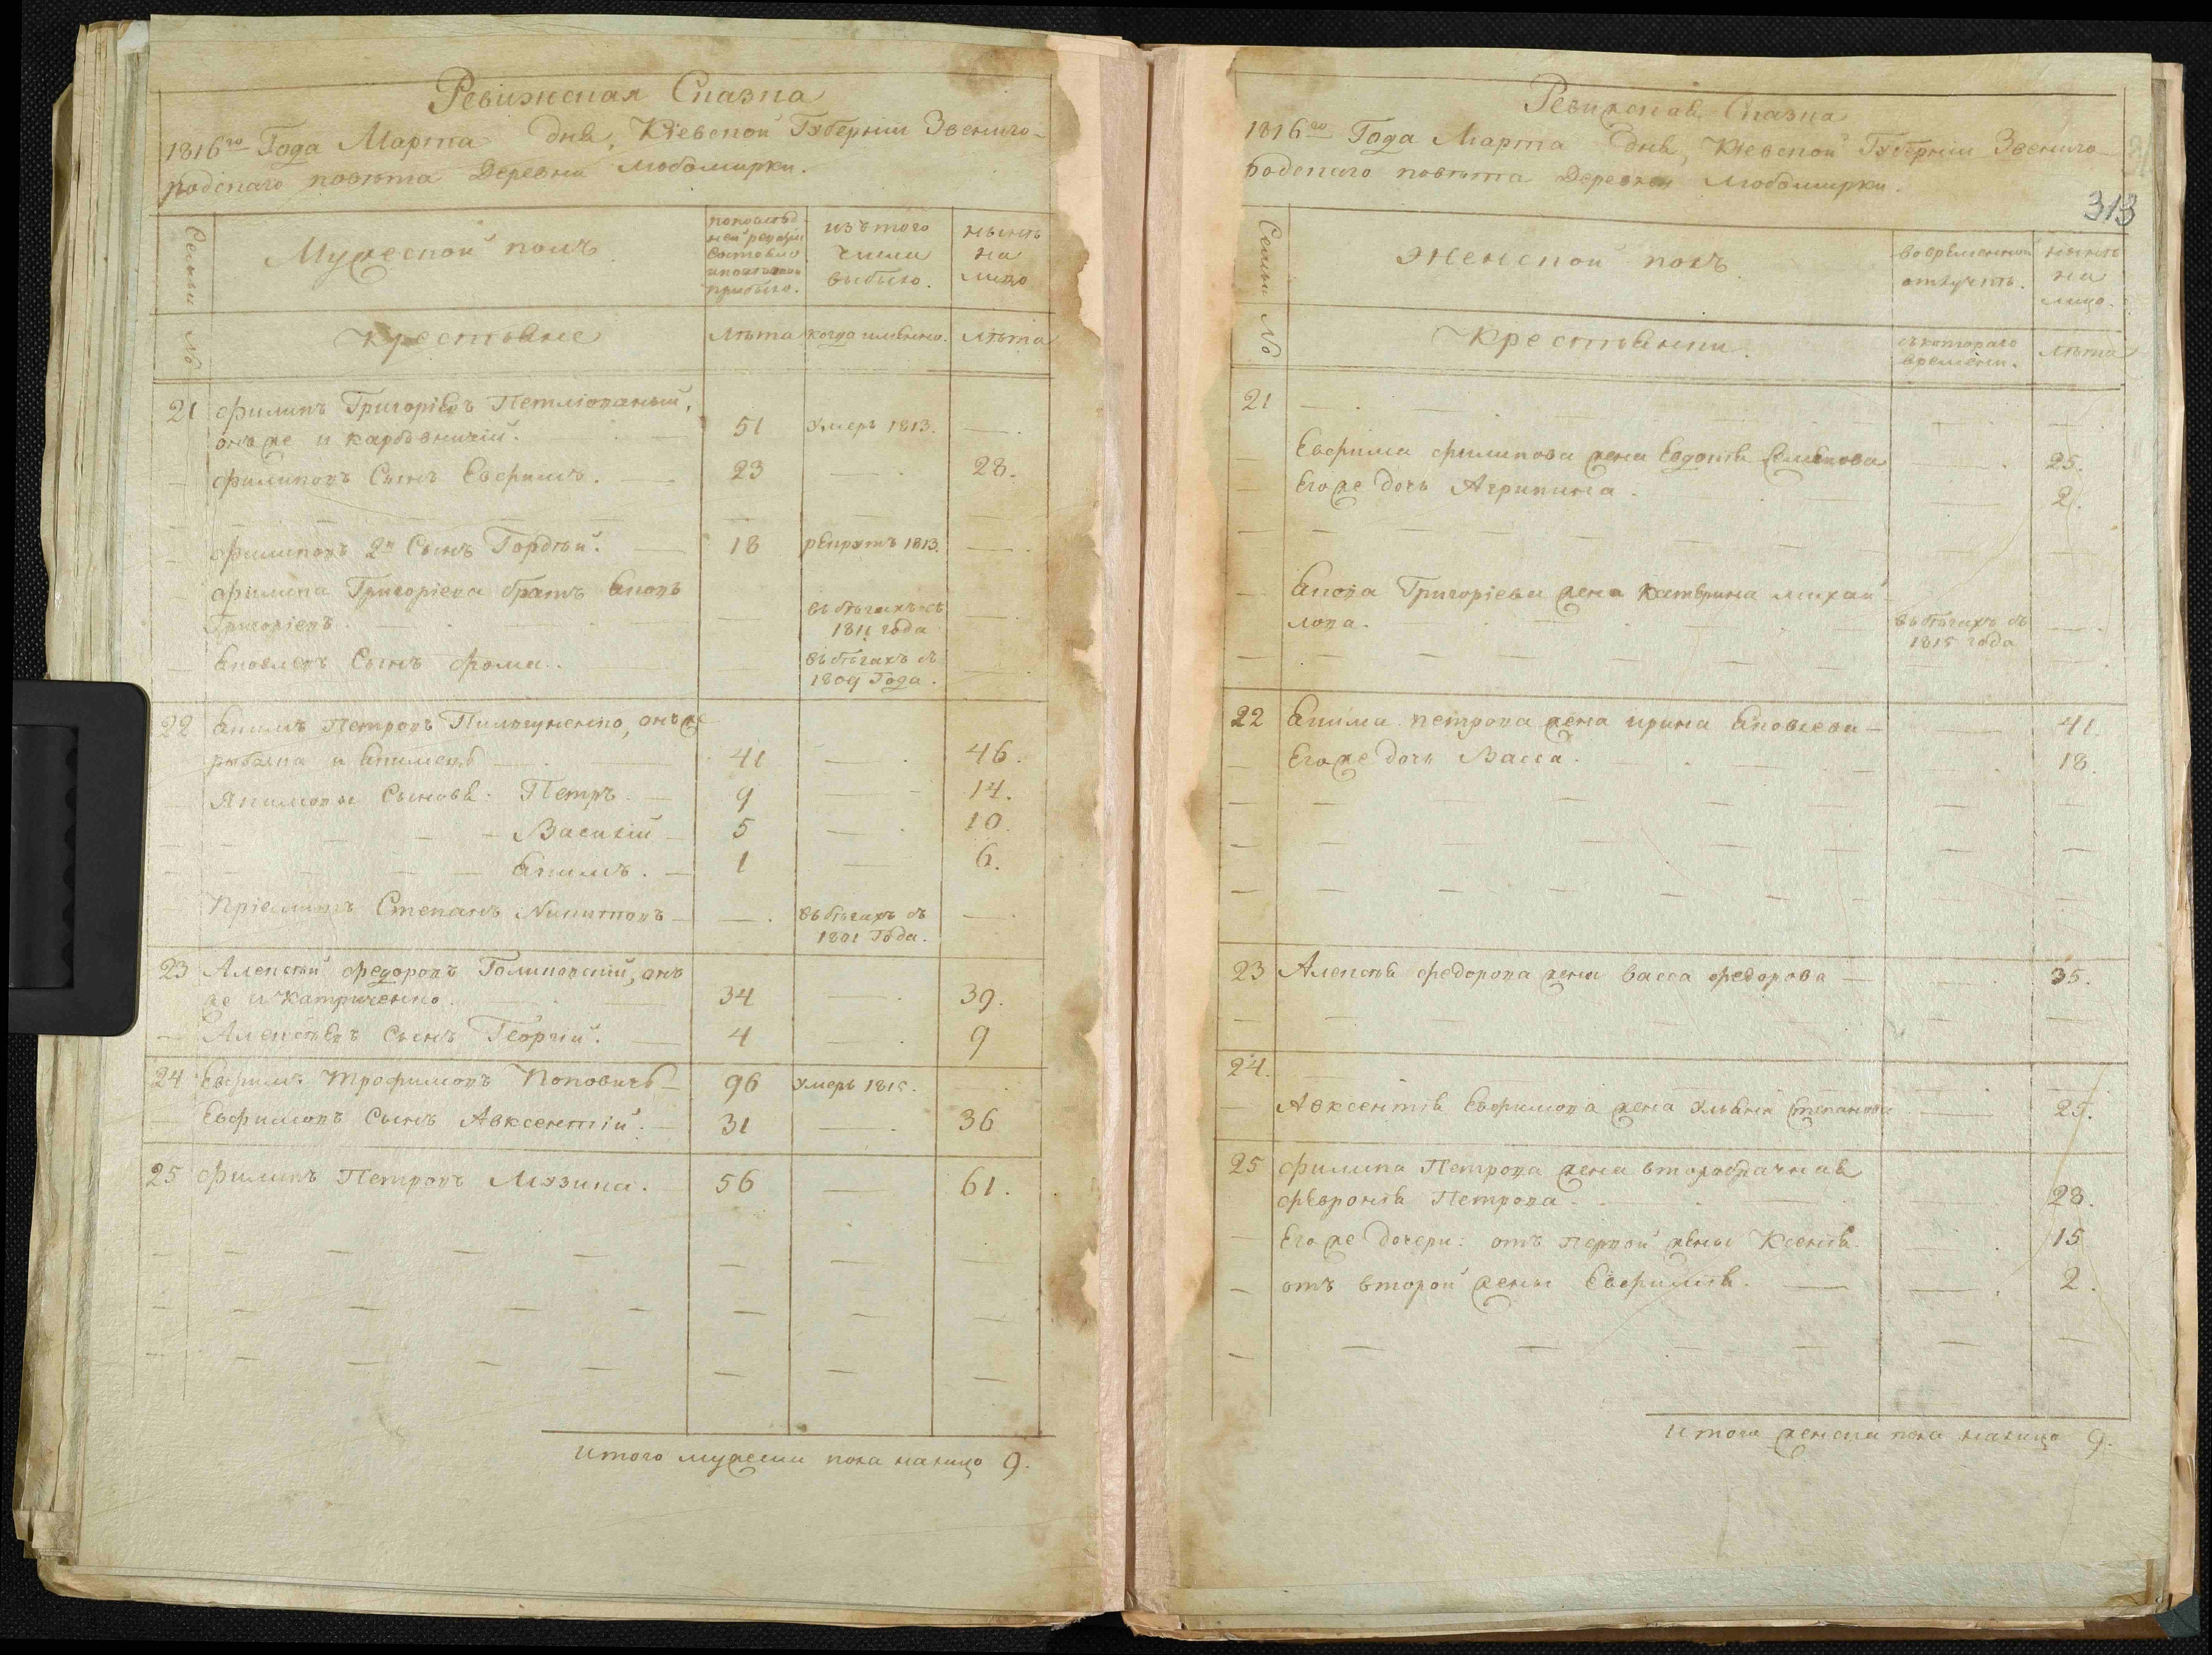 Ревижская Сказка
1816го Года Марта Дня, Кіевской Губерніи Звениго-
родскаго повѣта Деревни Любомирки.
Семьи №
Мужеской полъ
по послѣд-
ней ревизіи
состояло
и послѣ того
прибыло.
изъ того
числа
выбыло.
нынѣ
на
лицо
Крестьяне
Лѣта
когда имянно.
Лѣта
21 Филипъ Григоріевъ Петліованый,
онъ же и Карбовничій. 51 умеръ 1813.
Филиповъ Сынъ Евфимъ. 23 28.
Филиповъ 2й Сынъ Гордѣй. 18 рекрутъ 1813.
Филипа Григоріева братъ Яковъ
Григоріевъ. въ бѣгахъ съ
1811 года
Яковлевъ Сынъ Фома. въ бѣгахъ съ
1809 Года.
22 Якимъ Петровъ Пильгуненко, онъ же
рыбалка и Якименко 41 46.
Якимовы Сыновя: Петръ. 9 14.
Василій 5 10.
Якимъ. 1 6.
Пріемышъ Степанъ Никитовъ въ бѣгахъ съ
1801 Года.
23 Алексѣй Федоровъ Голиковскій, онъ
же и Катриченко. 34 39.
Алексѣевъ Сынъ Георгій. 4 9
24 Евфимъ Трофимовъ Поповичъ 96 умеръ 1815.
Евфимовъ Сынъ Авксентій. 31 36
25 Филипъ Петровъ Музыка. 56 61.
Итого мужеска пола налицо 9.
Ревижская Сказка
1816го Года Марта Дня, Кіевской Губерніи Звениго-
родскаго повѣта Деревни Любомирки.
313
Семьи №
Женской полъ
во временной
отлучкѣ.
нынѣ
на
лицо.
Крестьянки.
съ котораго
времени.
Лѣта
21
Евфима Филипова жена Евдокія Семенова 25.
Его же дочь Агрипина. 2.
Якова Григоріева жена Катерина Михай-
лова. въ бѣгахъ съ
1815 года
22 Якима Петрова жена Ирина Яковлева 41.
Его же дочь Васса. 18.
23 Алексѣя Федорова жена Васса Федорова 35.
24.
Авксентія Евфимова жена Ульяна Степанова 25.
25 Филипа Петрова жена второбрачная
Февронія Петрова 28.
Его же дочери: отъ первой жены Ксенія. 15
отъ второй жены Евфимія. 2.
Итого женска пола налицо 9.